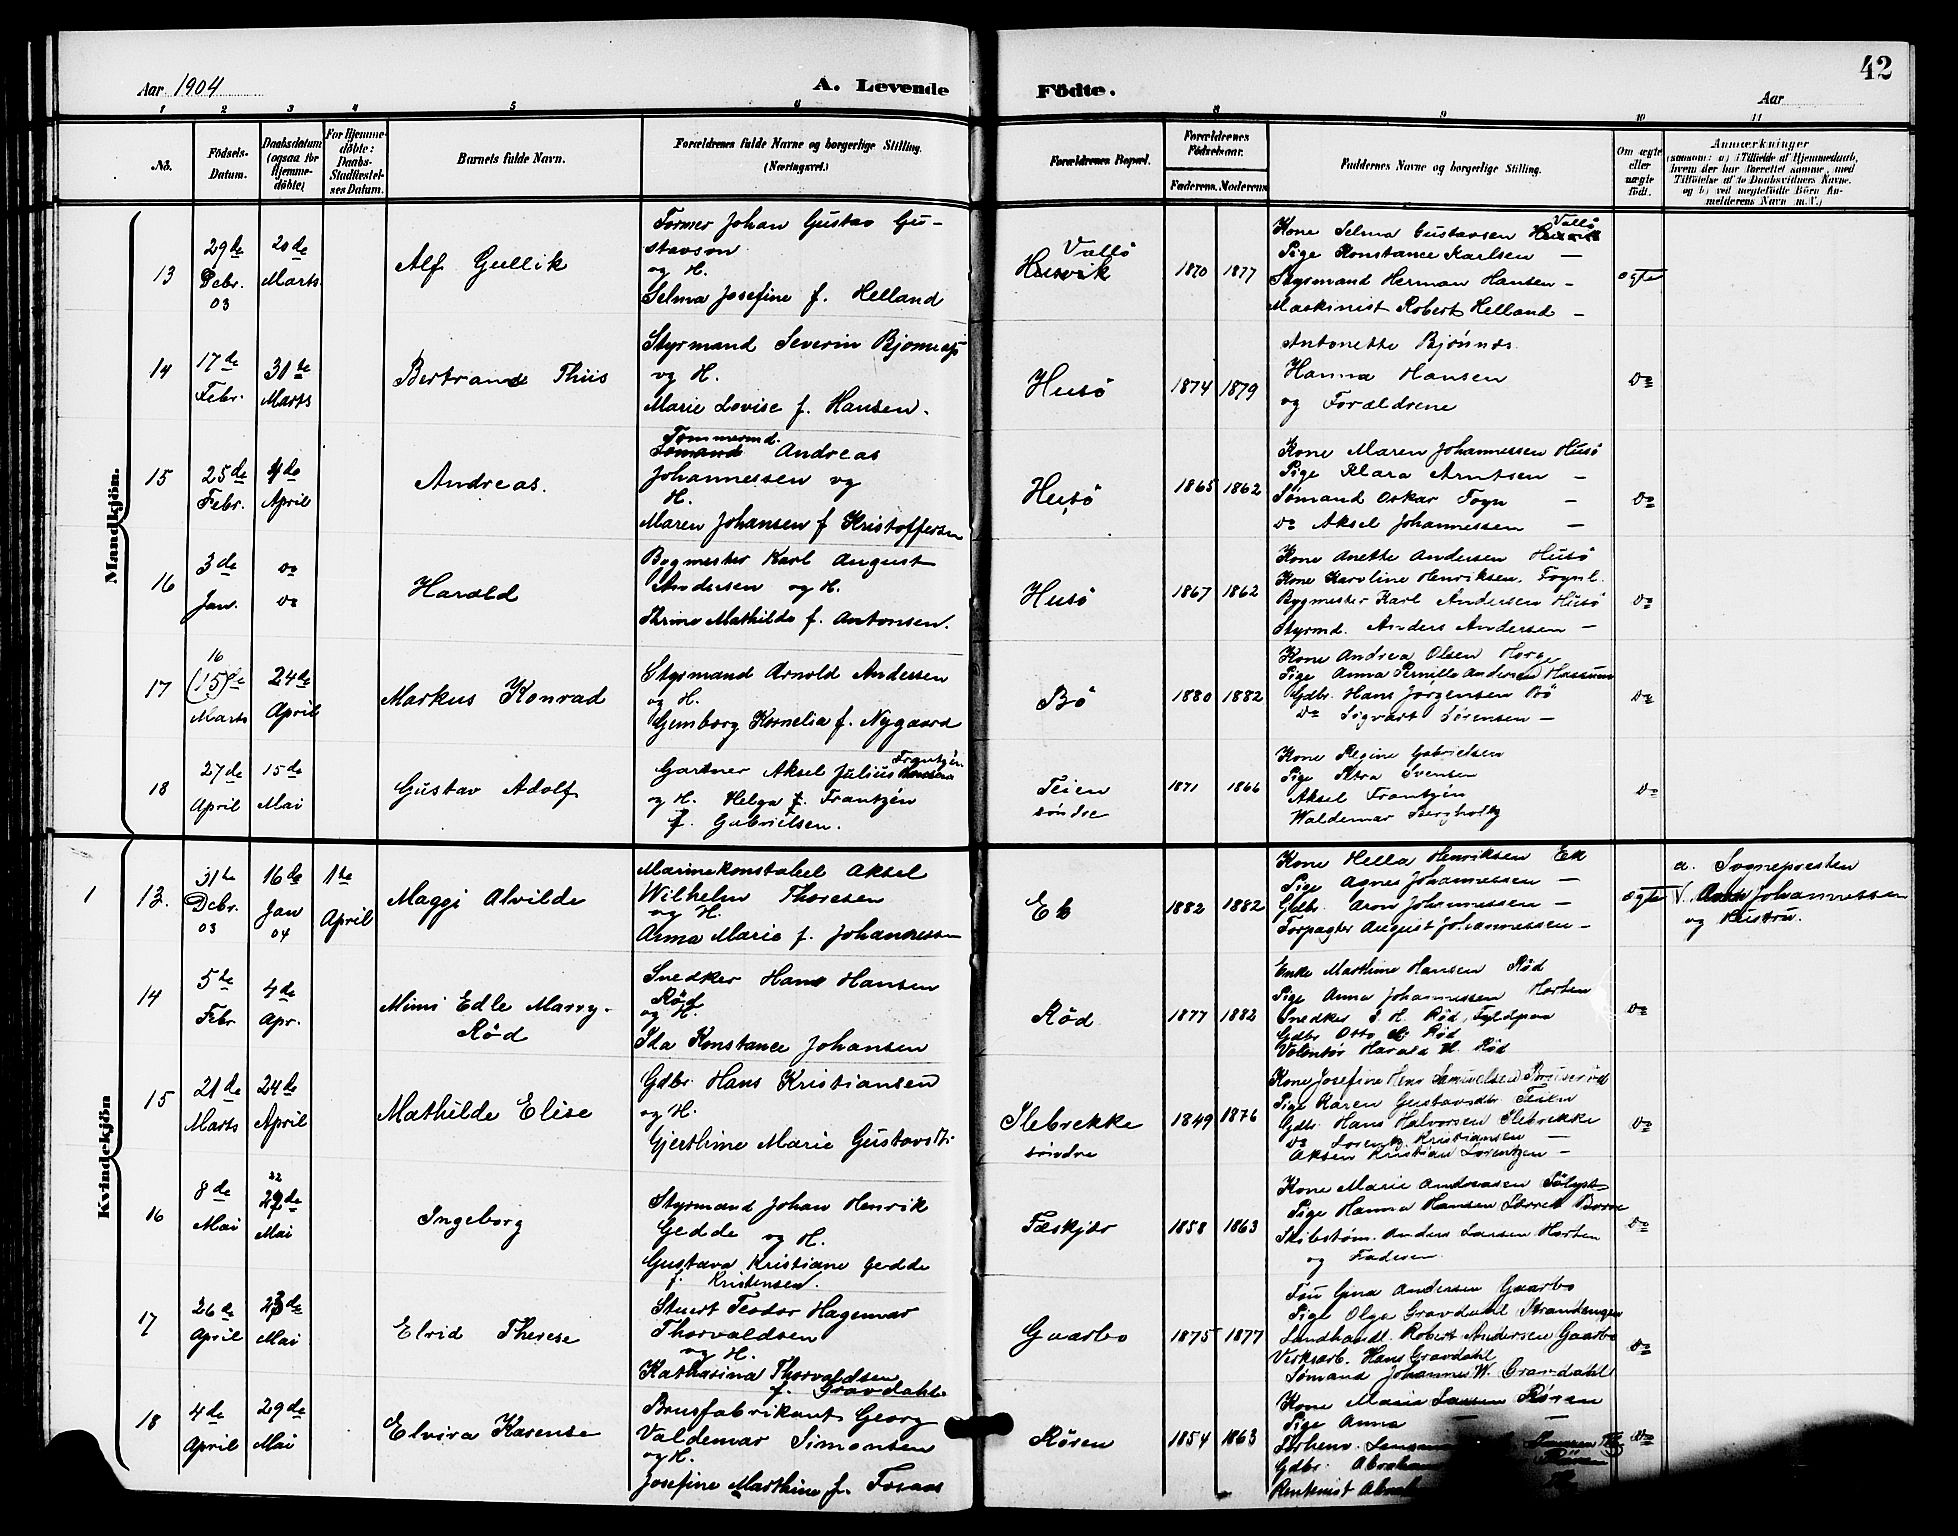 42
Aar 1904
A. Levende
Födte.
Aar
1 2 3 4 5 6 8 9 10 11
No.
Födsels-Datum.
Daabsdatum (ogsaa for Hjemmedöbte)
For Hjemmedöbte: Daabs-Stadfæstelses Datum.
Barnets fulde Navn.
Forældrenes fulde Navne og borgerlige Stilling. (Næringsvei.)
Forældrenes Bopæl.
Forældrenes Födselsaar.
Faderens. Moderens.
Faddernes Navne og borgerlige Stilling.
Om ægte eller uægte födt.
Anmærkninger
(saasom: a) i Tilfælde af Hjemmedaab, hvem der har forrettet samme, med Tilföielse af to Daabsvidners Navne, og b) ved uegtefödte Börn Anmelderens Navn m.V.)
Mandkjön.
13
29de Debr. 03
20de Marts
Alf Gullik
Former Johan Gustav Gu-
stavson
og H.
Selma Josefine f. Helland
Vallö
Husvik
1870 1877
Kone Selma Gustavsen Vallö
Pige Konstance Karlsen —
Styrmand Herman Hansen —
Maskinist Robert Helland —
ægte
14
17de Febr.
31te Marts
Bertrand Thiis
Styrmand Severin Bjønnes
og H.
Marie Lovise f. Hansen.
Husö
1874 1879
Antonette Bjönnes
Hanna Hansen
og Forældrene
do
15
25de Febr.
4de April
Andreas.
Tømmermd.
Sømand Andreas
Johannessen og
H.
Maren Johansen f Kristoffersen
Husö
1865 1862
Kone Maren Johannessen Husö
Pige Klara Arntsen —
Sømand Oskar Fogn —
do Aksel Johannessen —
do
16
3de Jan.
do do
Harald
Bygmester Karl August
Andersen og H.
Thrine Mathilde f. Antonsen.
Husö
1867 1862
Kone Anette Andersen Husö
Kone Karoline Henriksen, Fognl.
Bygmester Karl Andersen Husö
Styrmd. Anders Andersen —
do
17
16
(15)de Marts
24de April
Markus Konrad
Styrmand Arnold Andersen
og H.
Gemborg Kornelia f. Nygaard
Bö
1880 1882
Kone Andrea Olsen Horge
Pige Anna Pernille Andersen Hassum
Gdbr. Hans Jörgensen Bö
do Sigvart Sörensen —
do
18
27de April
15de Mai
Gustav Adolf
Gartner Aksel Julius Frantzén
og H. Helga f. Frantzén
f. Gabrielsen.
Teien
søndre
1871 1866
Kone Regine Gabrielsen
Pige Petra Svensen
Aksel Frantzén
Waldemar Bergholtz
do
Kvindekjön
1
13.
31te Debr. 03
16de Jan 04
1ste April
Maggi Alvilde
Marinekonstabel Aksel
Wilhelm Thoresen
og H.
Anna Marie f. Johannessen
Ek
1882 1882
Kone Hella Henriksen Ek
Pige Agnes Johannessen —
Gdbr. Aron Johannessen —
Forpagter August Johannessen —
ægte
a. Sognepresten
V. Aron Johannessen
og Hustru.
14
5te Febr
4de Apr.
Mimi Edle Marry
Rød
Snedker Hans Hansen
Rød
og H.
Ida Konstance Johansen
Rød
1877 1882
Enke Marthine Hansen Rød
Pige Anna Johannessen Horten
Snedker S. H. Rød, Fyldpaa
Gdbr Otto Rød
Volontør Harald H. Rød
do
15
21de Marts
24de April
Mathilde Elise
Gdbr. Hans Kristiansen
og H.
Gjerthine Marie Gustavsdtr.
Slebrekke
søndre
1849 1876
Kone Josefine Samuelsen Bruserød
Pige Karen Gustavsdtr. Teien
Gdbr. Hans Halvorsen Slebrekke
do Lorentz Kristiansen —
Aksen Kristian Lorentzen —
do
16
8de Mai
22
Mai
Ingeborg
Styrmand Johan Henrik
Gedde og H.
Gustava Kristiane Gedde
f. Kristensen.
Feskjær
1858 1863
Kone Marie Andreasen Sölyst
Pige Hanna Hansen Borre
Skibstøm. Anders Larsen Horten
og Faderen.
do
17
26de April
23de Mai
Elvid Therese
Stuert Teodor Hagemar
Thorvaldsen
og H.
Katharina Thorvaldsen
f. Gravdahl.
Gaarbo
1875 1877
Fru Gina Andersen Gaarbo
Pige Olga Gravdahl Strandengen
Landhandl. Robert Andersen Gaarbo
Verksarb. Hans Gravdahl
Sømand Johannes W. Gravdahl
do
18
4de April
29de Mai
Elvira Karense
Brusfabrikant Georg
Valdemar Simonsen
og H.
Josefine Marthine f. Foraas
Røren
1854 1863
Kone Maria Larsen Røren
Pige Anna — —
Gdbr. Abraham
Rentenist
do